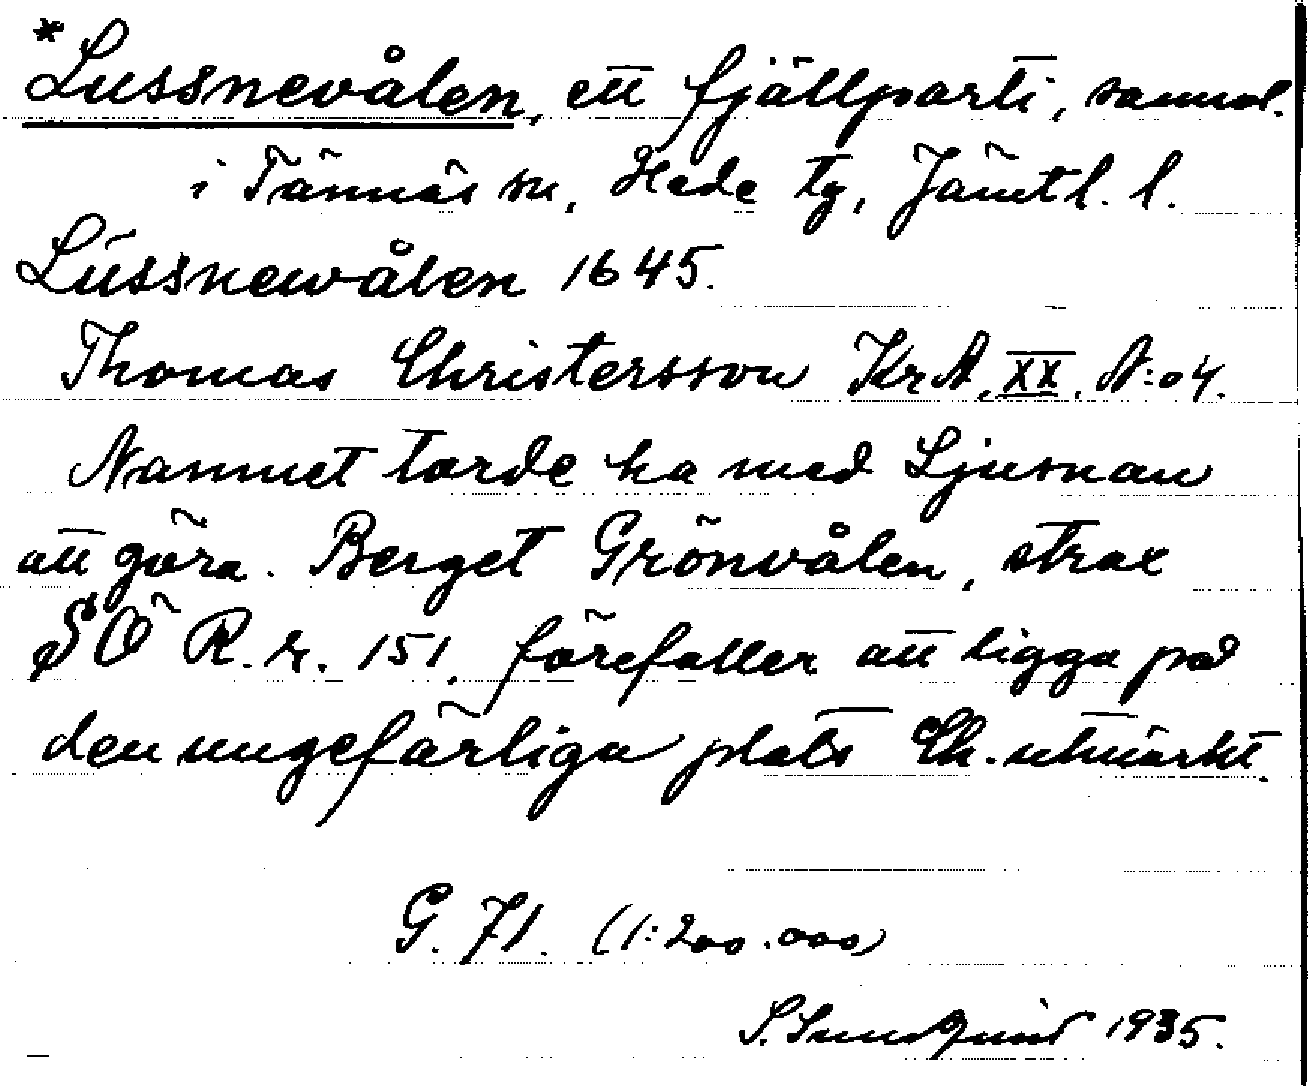 *Lussnevålen, ett fjällparti, samml.
i Tännäs sn, Hede tg, Jämtl. l.
Lússnewålen 1645.
Thomas Christersson KrA, XX, N:o 4.
Namnet torde ha med Ljusnan
att göra. Berget Grönvålen, strax
SÖ R.r. 151, förefaller att ligga på
den ungefärliga plats Ch. utmärkt.
G. 71. (1:200.000)
S. Sundquist 1935.